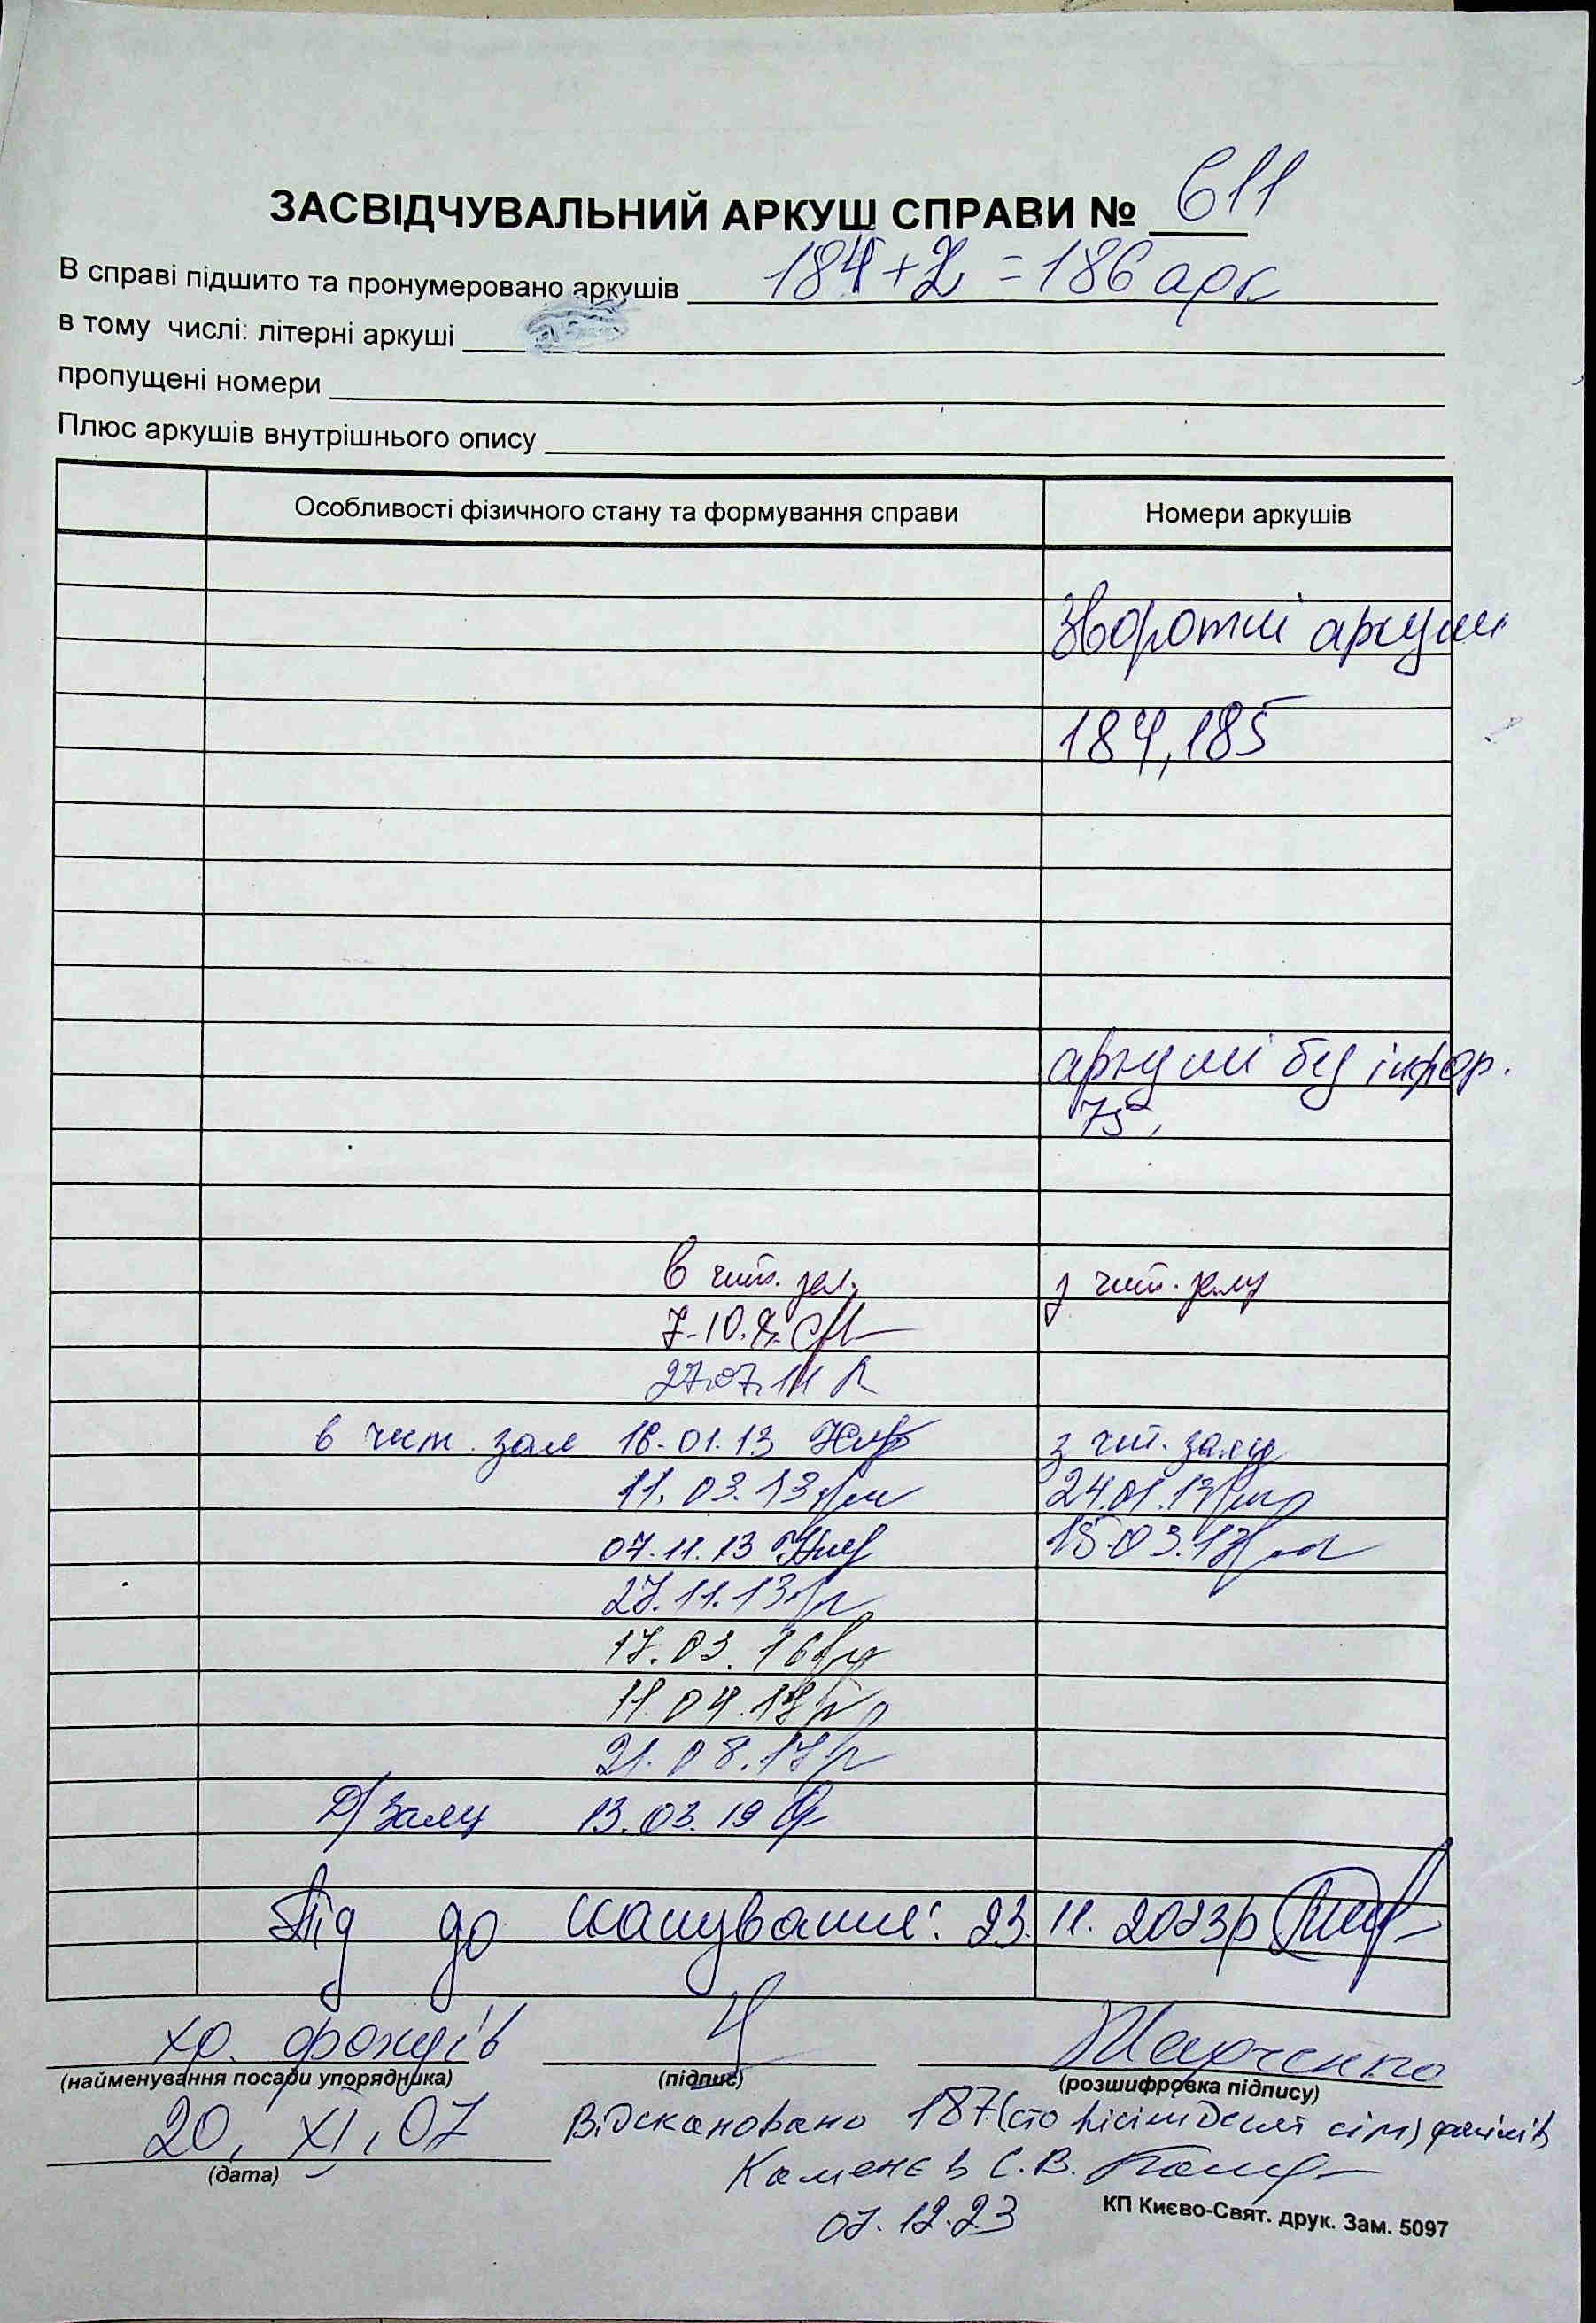 ЗАСВІДЧУВАЛЬНИЙ АРКУШ СПРАВИ № 611
В справі підшито та пронумеровано аркушів 184+2=186 арк
в тому числі: літерні аркуші
пропущені номери
Плюс аркушів внутрішнього опису
Особливості фізичного стану та формування справи Номери аркушів
Зворотні аркуші
184, 185
аркуші без інфор.
75,
в чит. зал. з чит. залу
7.10.
27.07.11
в чит. зал 16.01.13 з чит. залу
11.03.13 24.01.13
07.11.13 15.03.13
27.11.13
17.03.16
11.04.17
21.08.17
Д/залу 13.03.19
Під до сканування: 23.11.2023р
хр. фондів Марченко
(найменування посади упорядника) (підпис) (розшифровка підпису)
20, XI, 07 Відскановано 187 (сто вісімдесят сім) файлів
(дата) Каменєв С.В.
07.12.23 КП Києво-Свят. друк. Зам. 5097